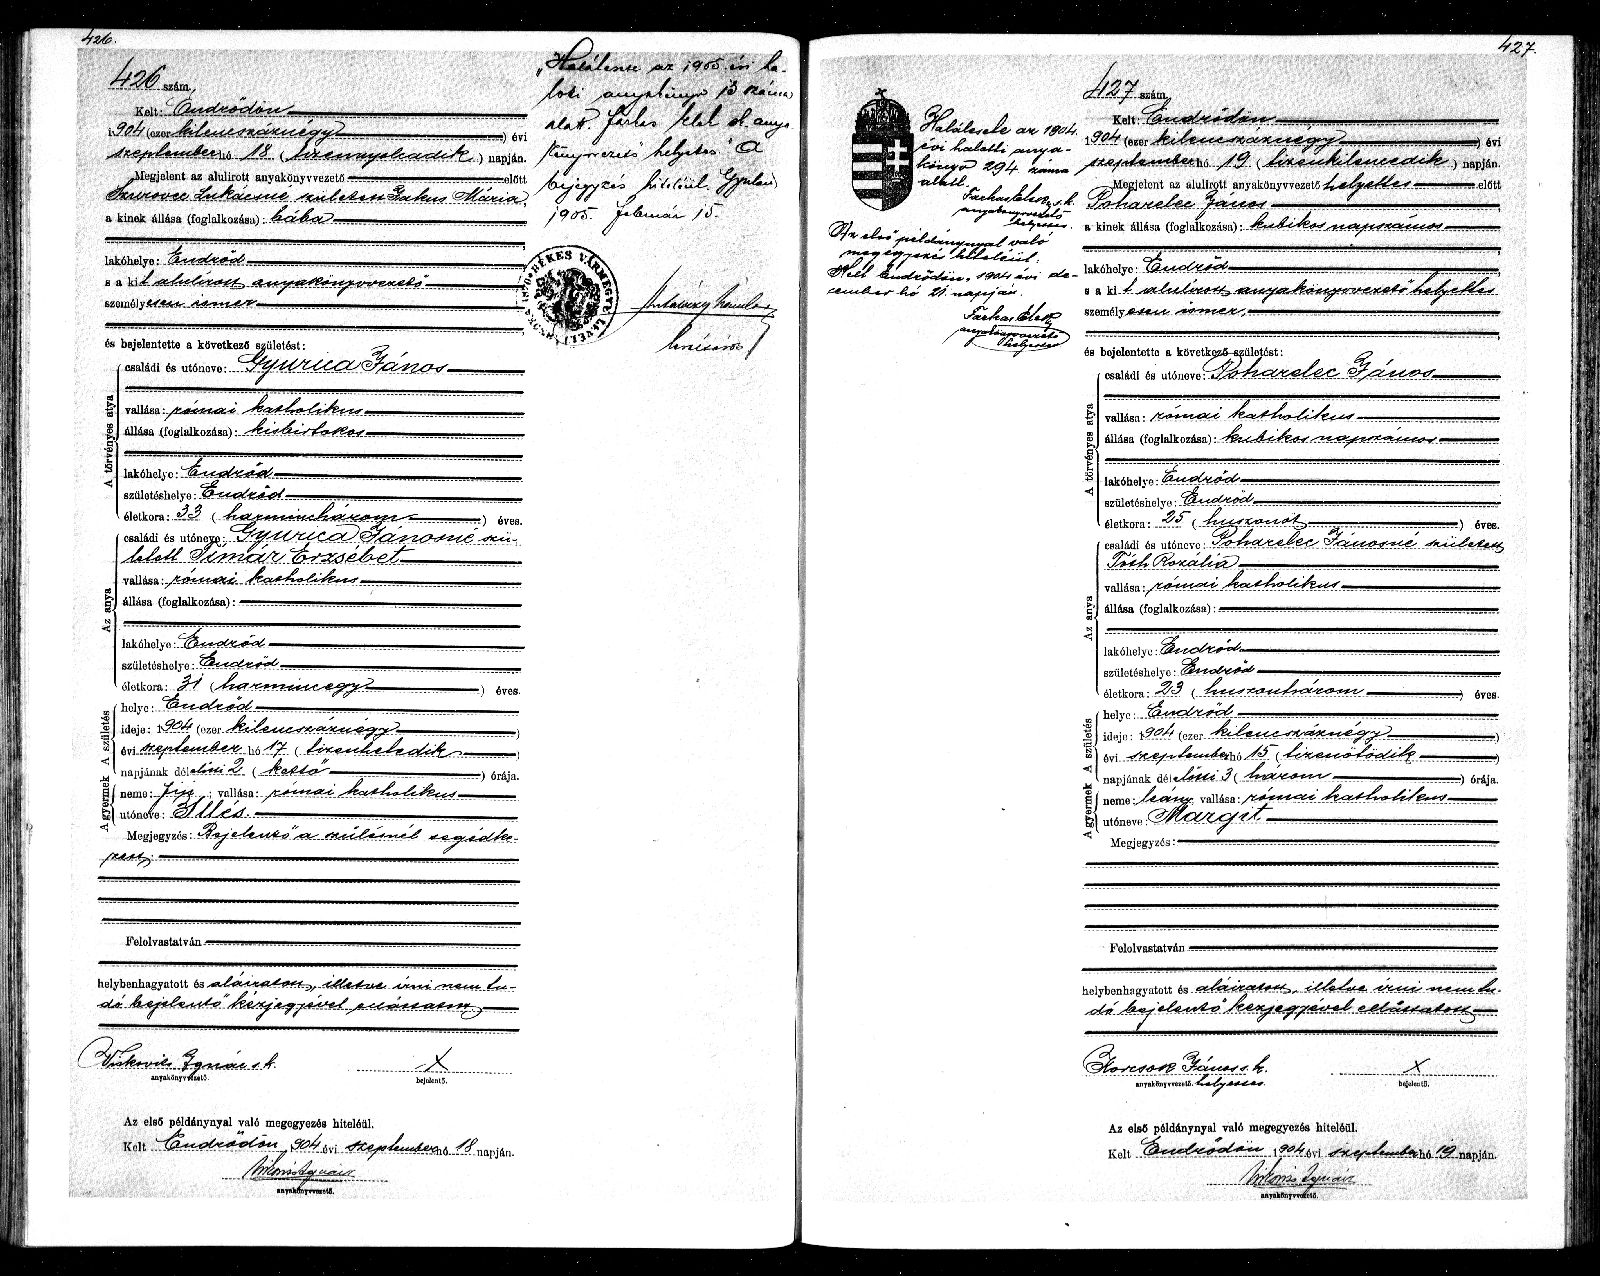 426.
426 szám.
Kelt: Endrődön
1904 (ezer kilenczáznégy) évi
szeptember hó 18 (tizennyolcadik) napján.
Megjelent az alulirott anyakönyvvezető előtt
Szurovec Lukácsné született Mária,
a kinek állása (foglalkozása): bába
lakóhelye: Endrőd
s a kit alulirott anyakönyvvezető
személyesen ismer
és bejelentette a következő születést:
A törvényes atya
családi és utóneve: Gyurica János
vallása: római katholikus
állása (foglalkozása): kisbirtokos
lakóhelye: Endrőd
születéshelye: Endrőd
életkora: 33 (harminchárom) éves.
Az anya
családi és utóneve: Gyurica Jánosné szü-
letett Tímár Erzsébet
vallása: római katholikus
állása (foglalkozása):
lakóhelye: Endrőd
születéshelye: Endrőd
életkora: 31 (harmincegy) éves.
A születés
helye: Endrőd
ideje: 1904 (ezer kilencszáznégy)
évi szeptember hó 17 (tizenhetedik)
napjának délelőtti 2 (kettő) órája.
A gyermek
neme: fiú; vallása: római katholikus
utóneve: Illés.
Megjegyzés: Bejelentő a szülésnél segédke-
zett.
Felolvastatván
helybenhagyatott és aláiratott, illetve irni nem tu-
dó bejelentő kézjegyével elláttatott
Vaskovits Ignác s.k.
anyakönyvvezető.
X
bejelentő.
Az első példánynyal való megegyezés hiteléül.
Kelt Endrődön, 1904 évi szeptember hó 18 napján.
anyakönyvvezető.
Halálesete az 1905. évi ha-
lotti anyakönyv 13 száma
alatt. Farkas Elek s.k. anya-
könyvvezető helyettes." A
bejegyzés hiteléül. Gyulán
1905. február 15.
BÉKÉS VÁRMEGYE
427.
427 szám.
Kelt: Endrődön
1904 (ezer kilencszáznégy) évi
szeptember hó 19 (tizenkilencedik) napján.
Megjelent az alulirott anyakönyvvezető helyettes előtt
Poharelec János
a kinek állása (foglalkozása): kubikos napszámos
lakóhelye: Endrőd
s a kit alulirott anyakönyvvezető helyettes
személyesen ismer,
és bejelentette a következő születést:
A törvényes atya
családi és utóneve: Poharelec János
vallása: római katholikus
állása (foglalkozása): kubikos napszámos
lakóhelye: Endrőd
születéshelye: Endrőd
életkora: 25 (huszonöt) éves.
Az anya
családi és utóneve: Poharelec Jánosné született
Tóth Rozália
vallása: római katholikus
állása (foglalkozása):
lakóhelye: Endrőd
születéshelye: Endrőd
életkora: 23 (huszonhárom) éves.
A születés
helye: Endrőd
ideje: 1904 (ezer kilencszáznégy)
évi szeptember hó 15 (tizenötödik)
napjának délelőtti 3 (három) órája.
A gyermek
neme: leány, vallása: római katholikus
utóneve: Margit
Megjegyzés:
Felolvastatván
helybenhagyatott és aláiratott, illetve irni nem tu-
dó bejelentő kézjegyével elláttatott
János s.k.
anyakönyvvezető helyettes
X
bejelentő.
Az első példánynyal való megegyezés hiteléül.
Kelt Endrődön 1904 évi szeptember hó 19 napján.
anyakönyvvezető.
Halálesete az 1904.
évi halotti anya-
könyv 294 száma
alatt.
Farkas Elek s.k.
anyakönyvvezető
helyettes.
Az első példánynyal való
megegyezés hiteléül.
Kelt Endrődön, 1904 évi de-
cember hó 21. napján.
Farkas Elek
anyakönyvvezető
helyettes